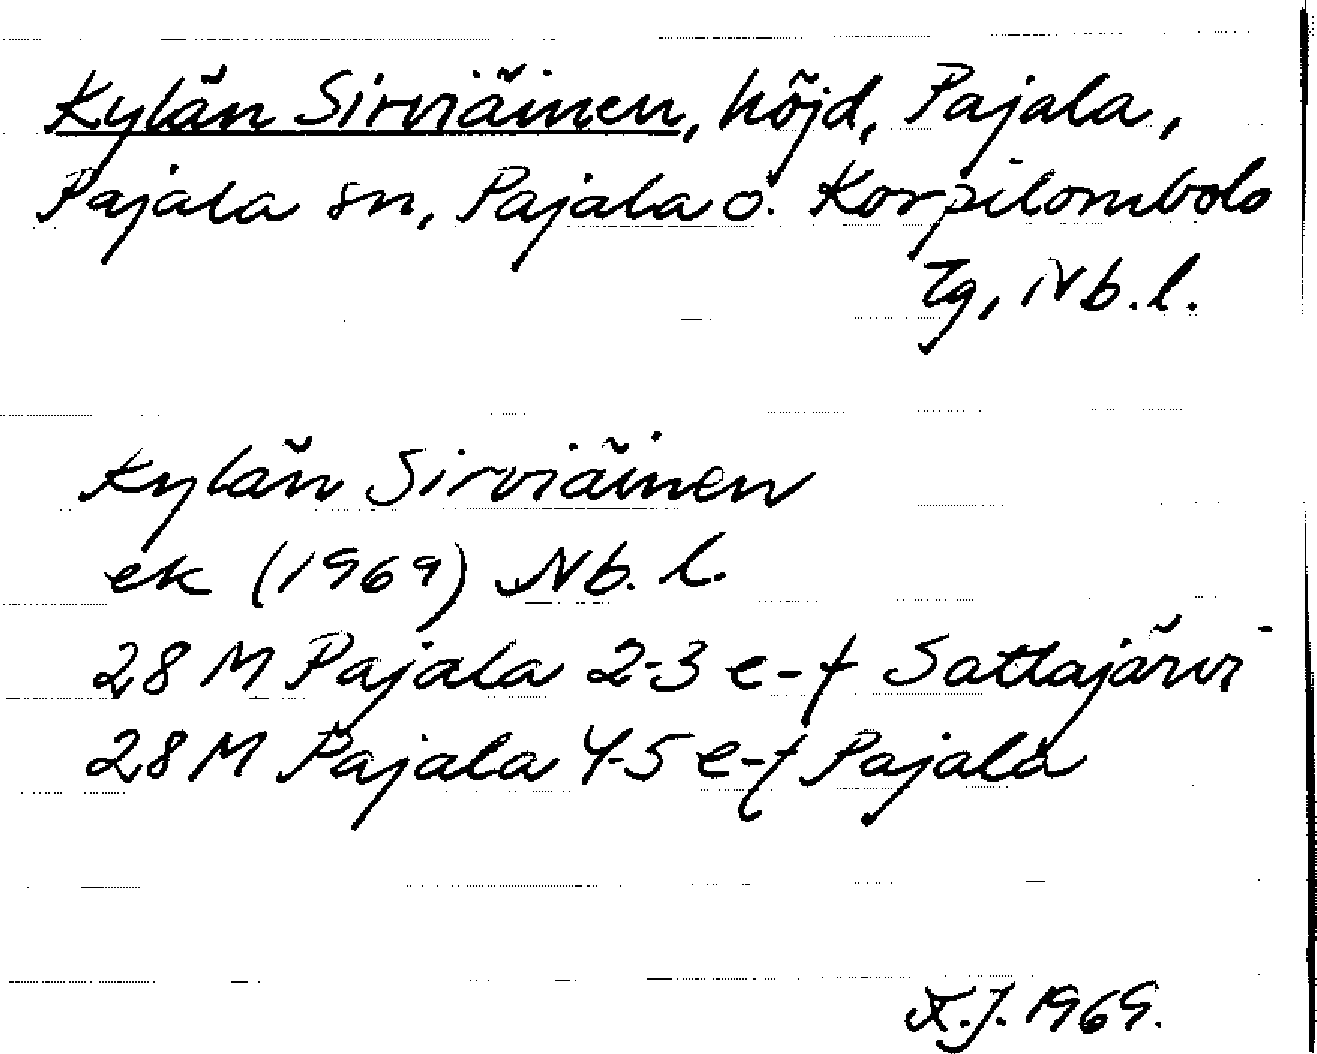 Kylän Sirviäinen, höjd, Pajala,
Pajala sn, Pajala o. Korpilombolo
Tg, Nb.l.
Kylän Sirviäinen
ek (1969) Nb. l.
28 M Pajala 2-3 e-f Sattajärvi
28 M Pajala 4-5 e-f Pajala
1969.